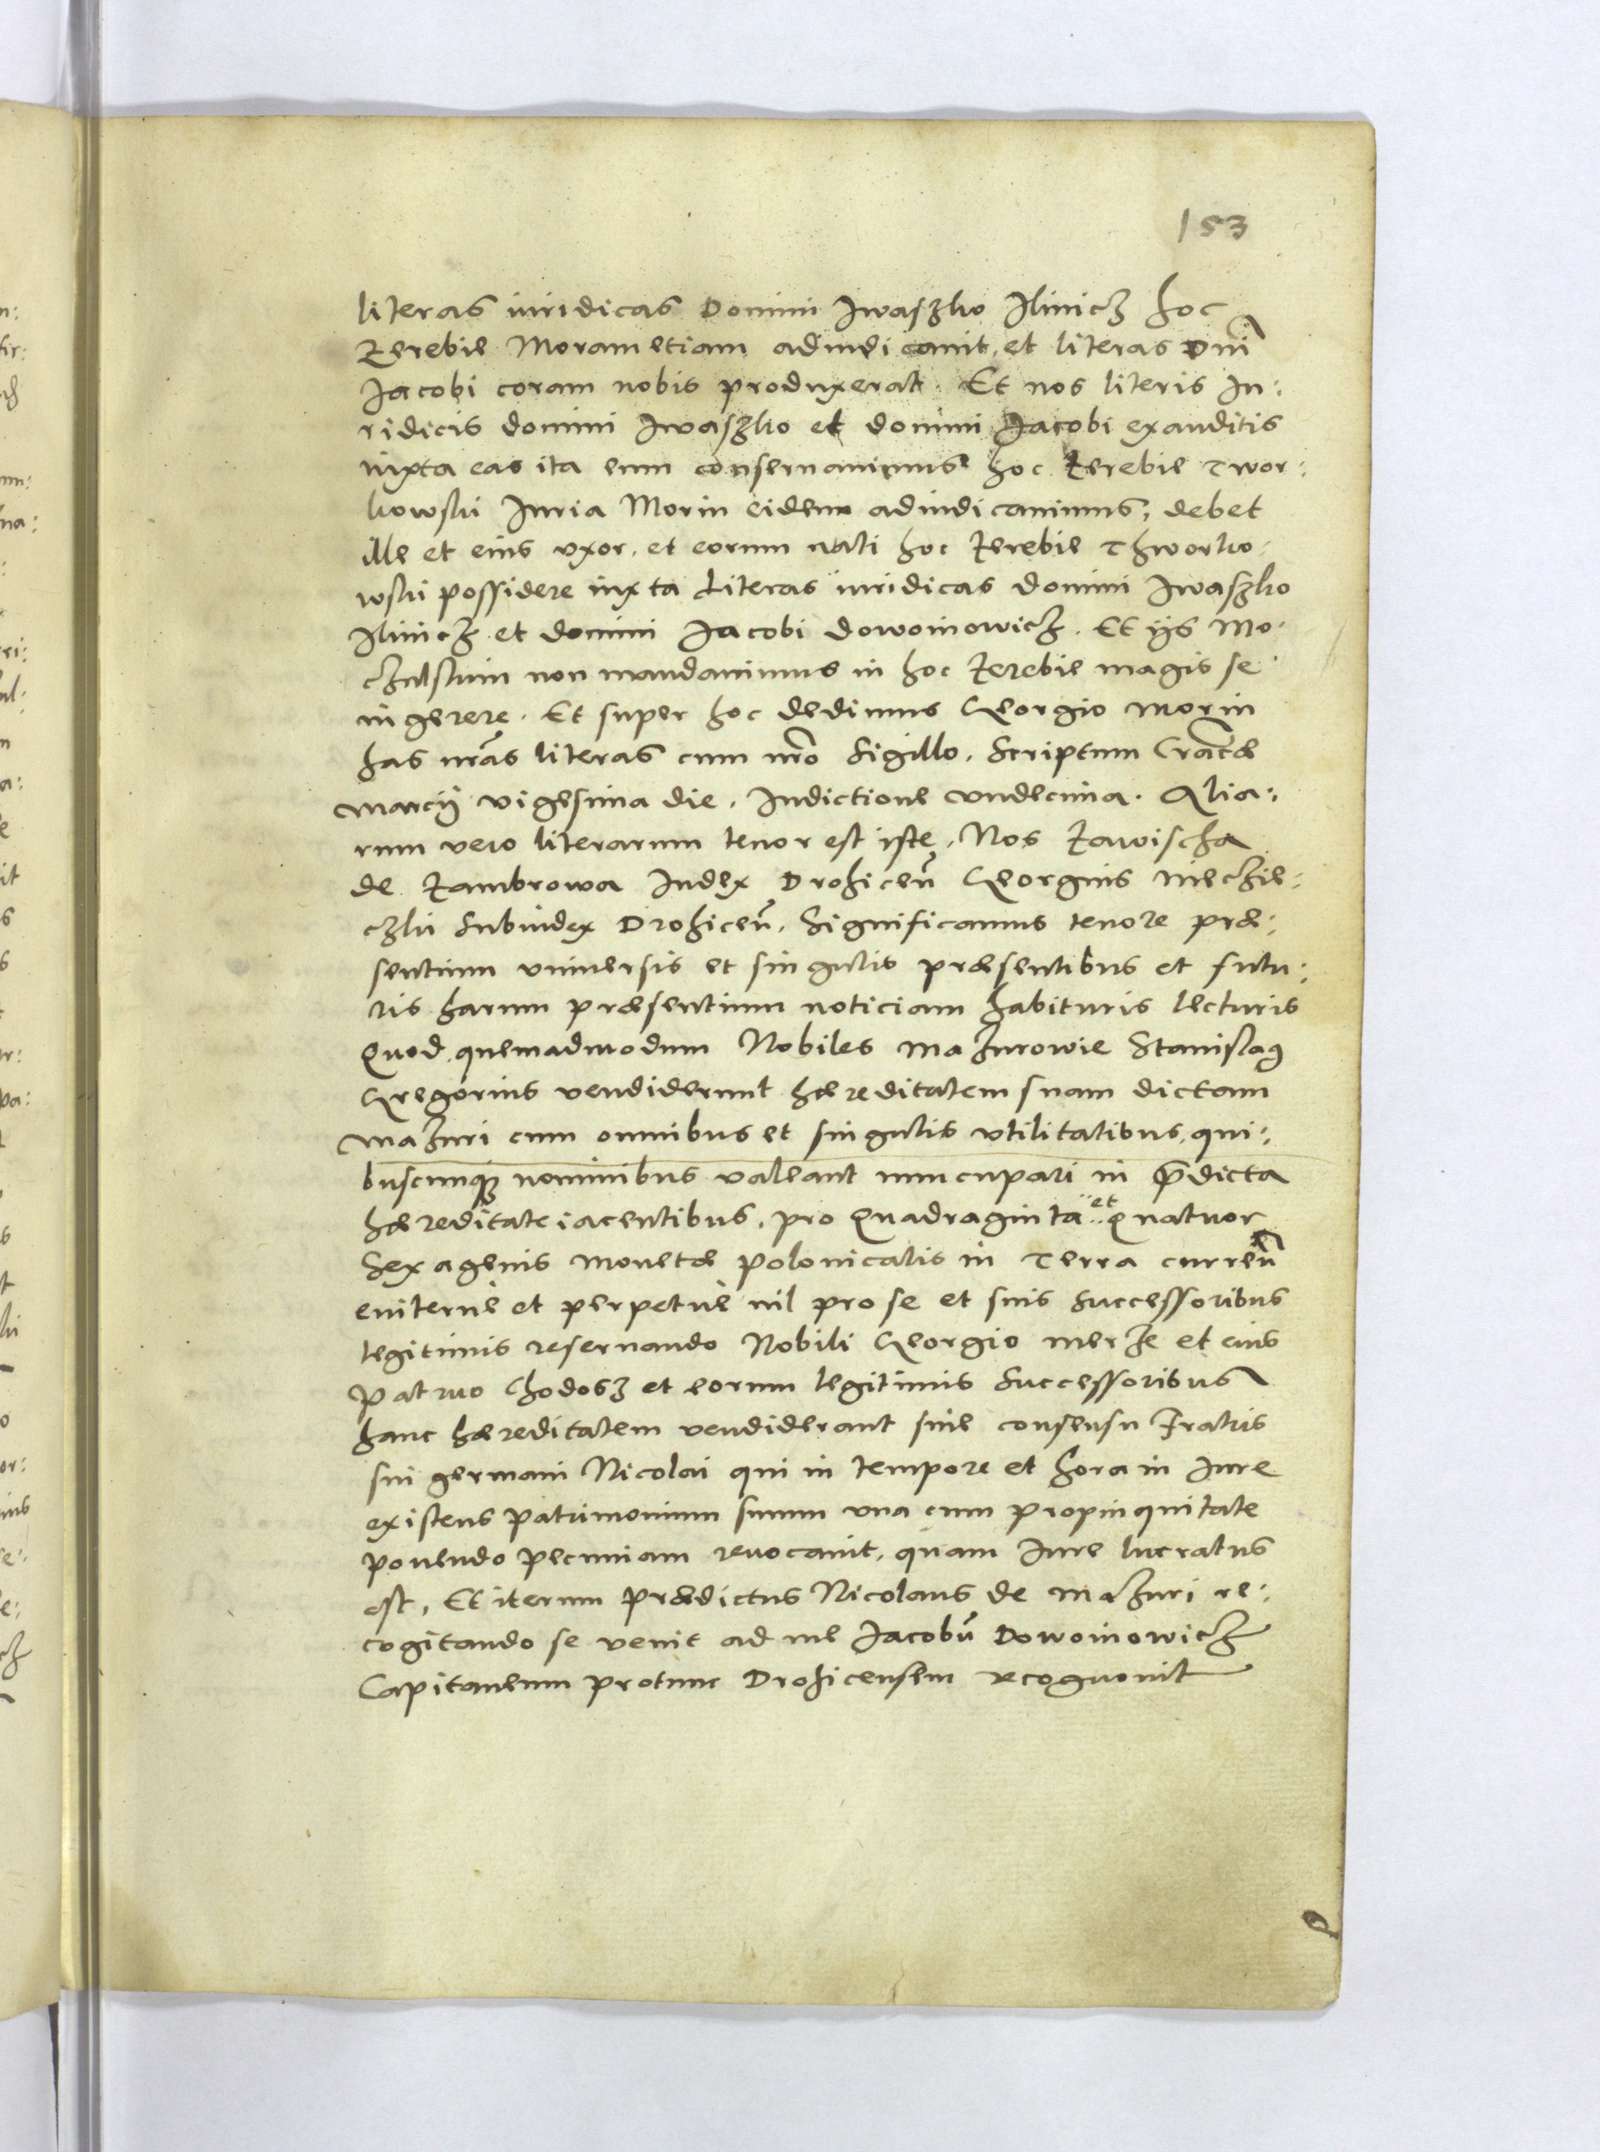 153
literas iuridicas Domini Iwaszko Ilinicz hoc
Zerebie Moram etiam adiudicavit, et literas Dni
Iacobi coram nobis produxerat. Et nos literis Iu:
ridicis domini Iwaszko et domini Iacobi exauditis
iuxta eas ita eum conservavimus hoc Zerebie Twor:
kowski Iuria Morin eidem adiudicavimus, debet
ille et eius uxor, et eorum nati hoc Zerebie Thworko:
wski possidere iuxta Literas iuridicas domini Iwaszko
Ilinicz et domini Iacobi Dowoinowicz. Et ijs Mo:
czulskim non mandavimus in hoc Zerebie magis se
ingerere. Et super hoc dedimus Georgio Morin
has nras literas cum nro Sigillo. Scriptum Crac̃ae
Marcij vigesima die, Indictione undecima. Alia:
rum vero literarum tenor est iste. Nos Zawischa
de Zambrowa Iudex Drohiceñ Georgius Meczie:
czki Subiudex Drohiceñ. Significamus tenore præ:
sentium universis et singulis præsentibus et futu:
ris harum præsentium noticiam habituris lecturis
Quod quemadmodum Nobiles Mazurowie Stanislaus
Gregorius vendiderunt hæreditatem suam dictam
Mazuri cum omnibus et singulis utilitatibus, qui:
buscunque nominibus valeant nuncupari in prædicta
hæreditate iacentibus, pro Quadraginta et quatuor
Sexagenis monetæ polonicalis in Terra curreñ
eviternè et perpetuè nil pro se et suis Successoribus
legitimis reservando Nobili Georgio Merze et eius
Patruo Chodosz et eorum legitimis Successoribus
hanc hæreditatem vendiderant sine consensu Fratris
sui germani Nicolai qui in tempore et hora in Iure
existens Patrimonium suum una cum propinquitate
ponendo pecuniam revocavit, quam Iure lucratus
est, Et iterum Prædictus Nicolaus de Mazuri re:
cogitando se venit ad me Iacobũ Dowoinowicz
Capitaneum protunc Drohicensem recognovit